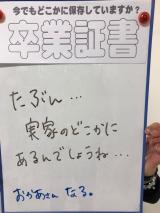 今でもどこかに保存していますか？
卒業証書
たぶん…
実家のどこかに
あるんでしょうね…
おかあさん なる。